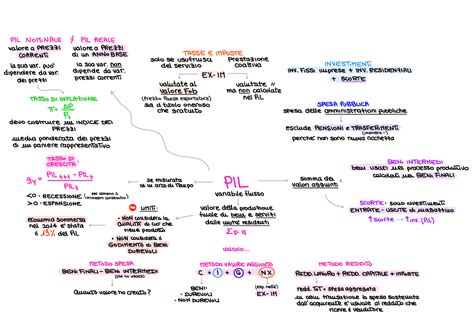 PIL NOMINALE ≠ PIL REALE
valore a PREZZI
CORRENTI
la sua var. può
dipendere da var.
dei prezzi
valore a PREZZI
di un ANNO BASE
la sua var. non
dipende da var.
prezzi correnti
TASSO DI INFLAZIONE
devo costruire un INDICE DEI
PREZZI
media ponderata dei prezzi
di un paniere rappresentativo
TASSE E IMPOSTE
solo se usufruisca
del servizio
Prestazione
coativa
EX-IM
valutate al
valore Fob
(prezzo Paese esportatore)
sia a titolo oneroso
che gratuito
valutate "
ma non calcolate
nel PIL
INVESTIMENTI
INV. FISSI imprese + INV. RESIDENZIALI
+ SCORTE
SPESA PUBBLICA
spesa delle amministrazioni pubbliche
esclude PENSIONI E TRASFERIMENTI
perché non sono nuova ricchezza
BENI INTERMEDI
beni usati nel processo produttivo
calcolati nei BENI FINALI
SCORTE: sono investimenti
ENTRATE - USCITE di magazzino
↑ scorte → inv (PIL)
TASSO DI
CRESCITA
<0 = RECESSIONE
>0 = ESPANSIONE
se misurata
in un arco di tempo
PIL
variabile flusso
somma dei
valori aggiunti
valore della produzione
finale di beni e servizi
dalle unità residenti
Σp·q
calcolo...
LIMITI:
• NON considera la
QUALITÀ di ciò che
viene prodotto
• NON considera il
GODIMENTO di BENI
DUREVOLI
economia sommersa
nel 2014 è stata
il 13% del PIL
METODO SPESA
BENI FINALI - BENI INTERMEDI
Quanto valore ho creato?
METODO VALORE AGGIUNTO
C + I + G + NX
BENI:
• DUREVOLI
• NON DUREVOLI
(exp nette)
EX-IM
METODO REDDITO
REDD. LAVORO + REDD. CAPITALE + IMPOSTE
redd. TOT = spesa aggregata
in ogni transazione la spesa sostenuta
dall'acquirente è uguale al reddito che
riceve il venditore